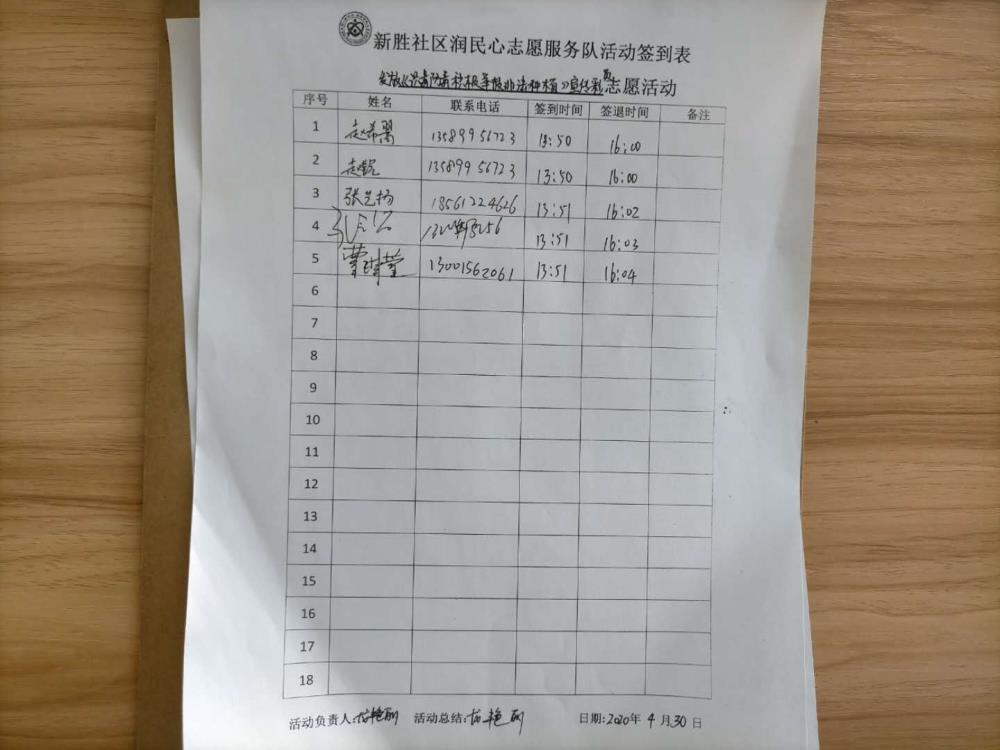 新胜社区润民心志愿服务队活动签到表
发放《识毒防毒积极举报非法种植》宣传彩页志愿活动
序号 姓名 联系电话 签到时间 签退时间 备注
1 赵希翯 13589956723 13:50 16:00
2 13589956723 13:50 16:00
3 张艺扬 18561224626 13:51 16:02
4 13:51 16:03
5 曹琪莹 13001562061 13:51 16:04
6
7
8
9
10
11
12
13
14
15
16
17
18
活动负责人: 艳丽 活动总结: 艳丽 日期:2020年 4月30日